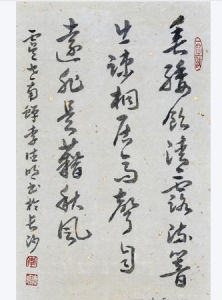 垂緌飲清露流響
出疎桐居高聲自
遠非是藉秋風
虞世南蟬李明书於長沙